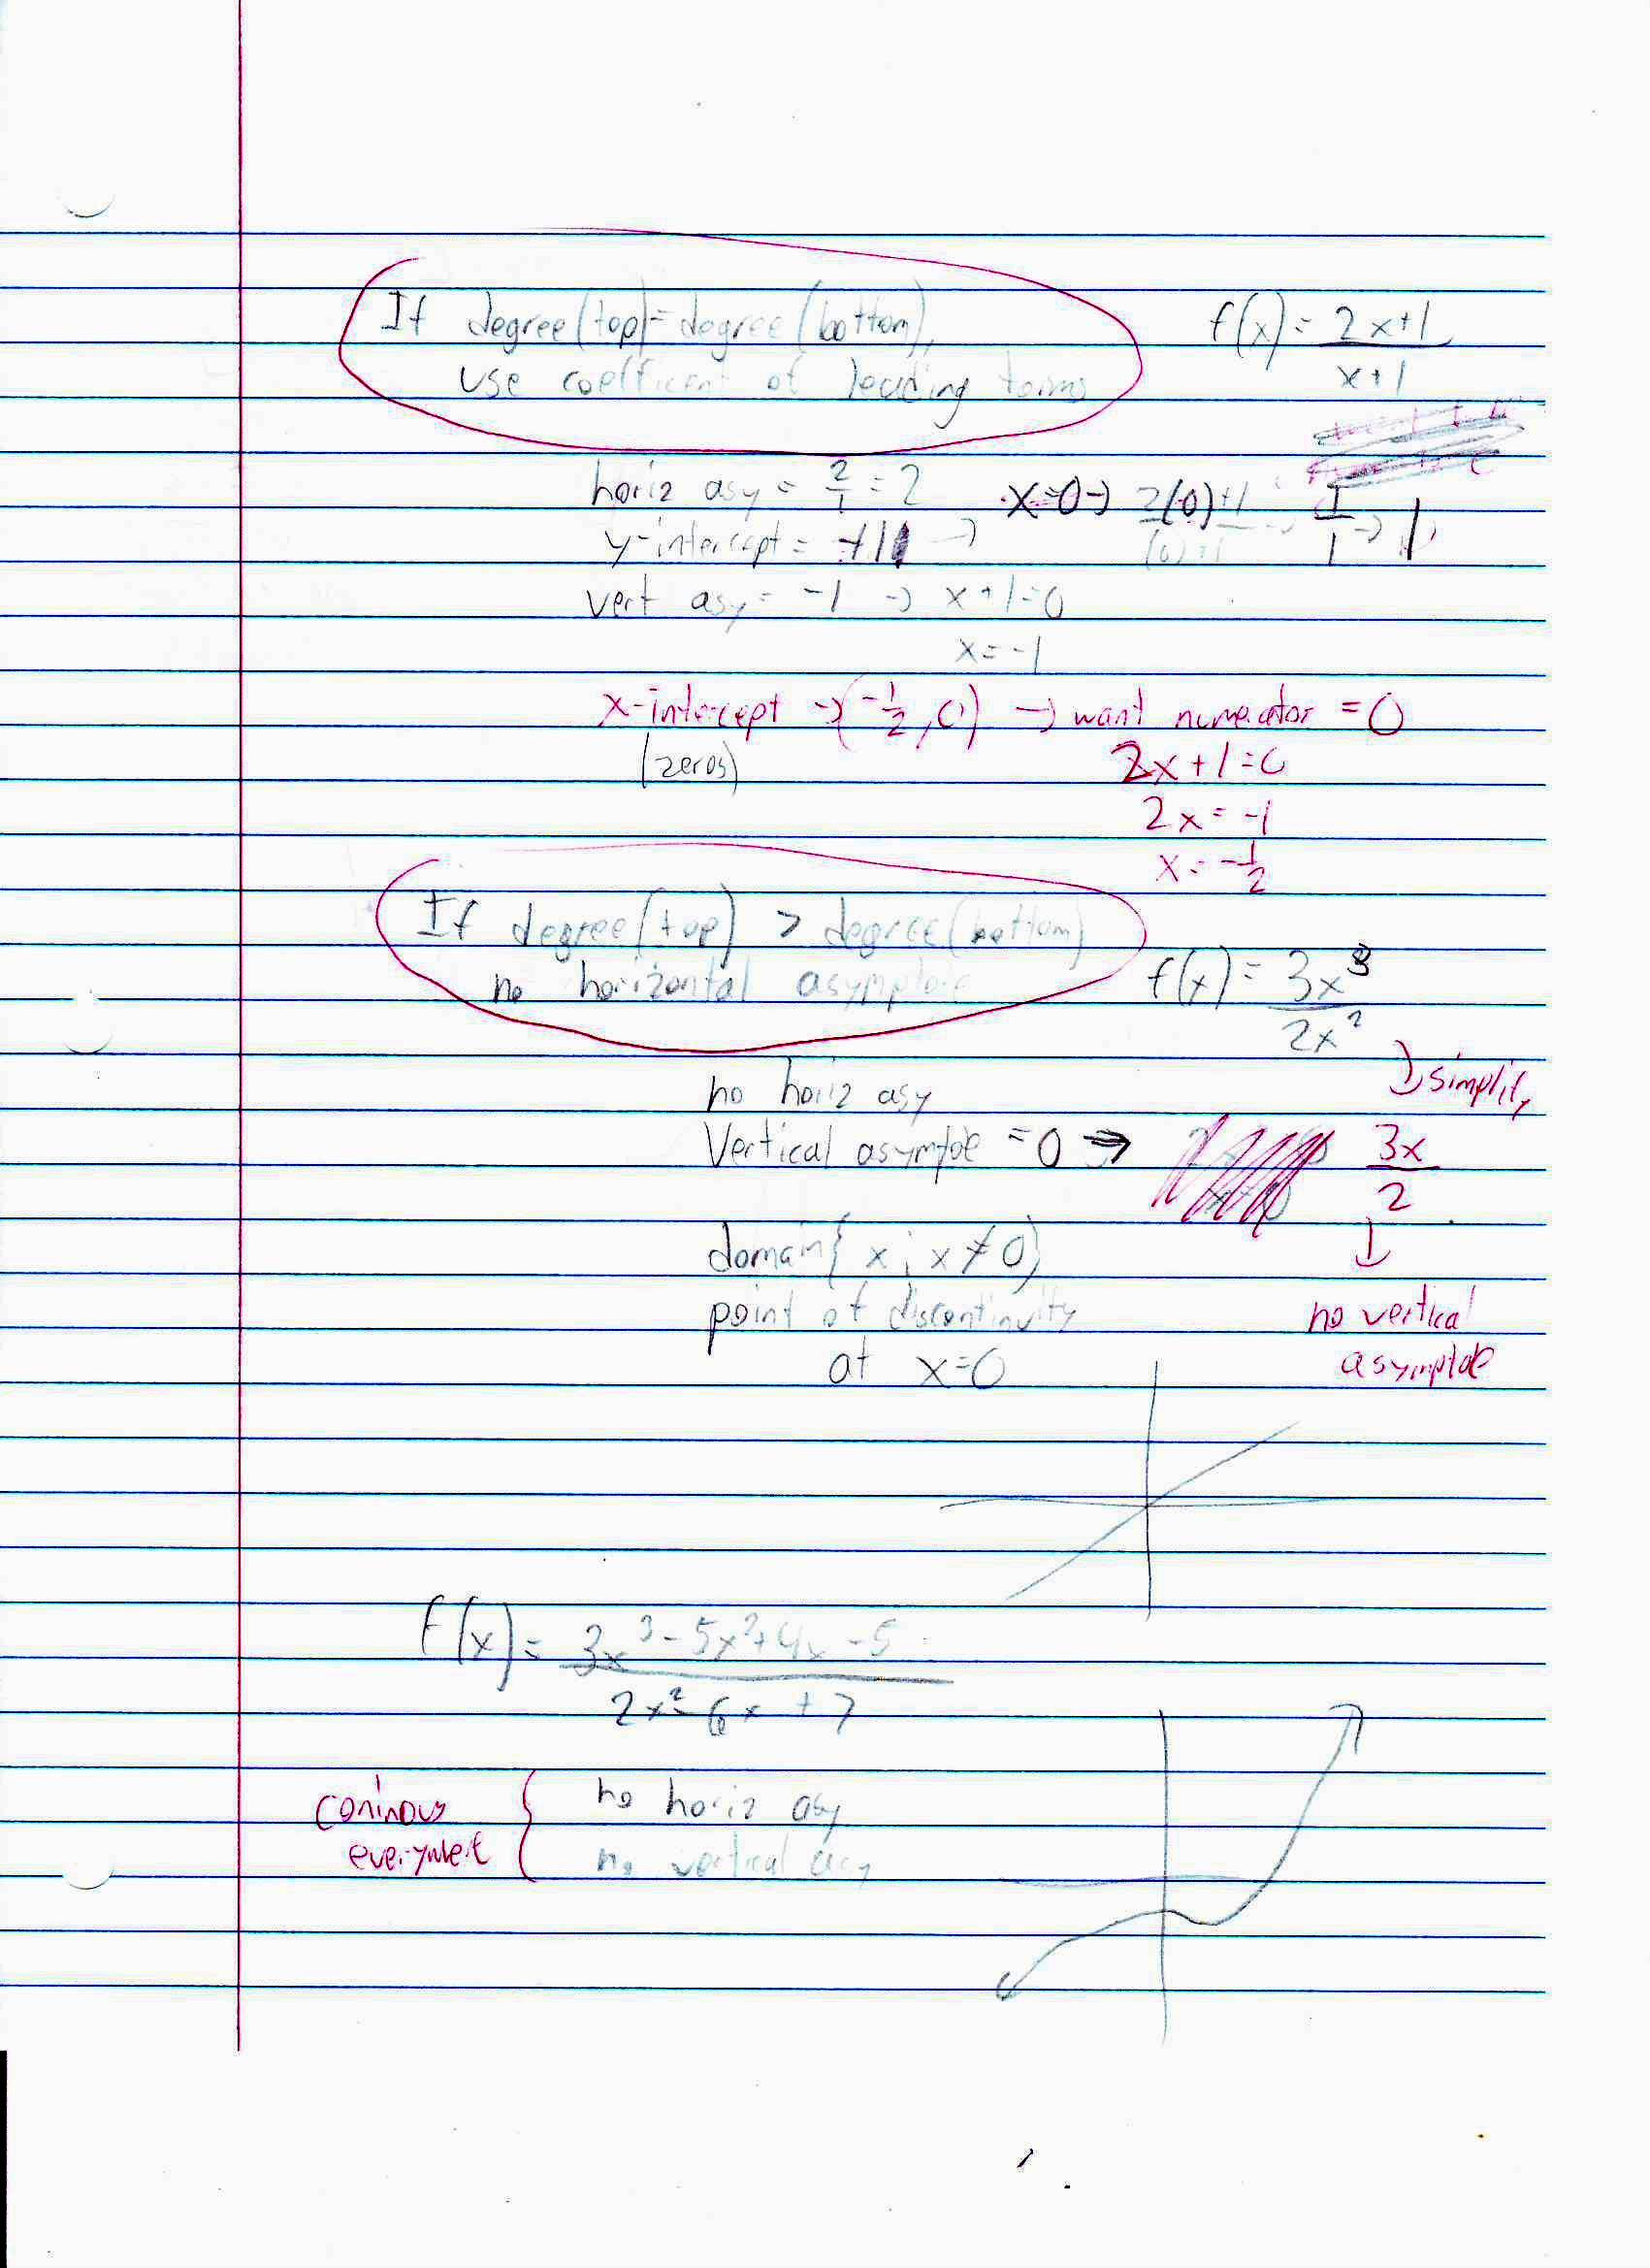 If degree(top)=degree(bottom),
use coefficent of leading terms
f(x) = 2x+1
x+1
horiz asy = 2/1 = 2
x=0 → 2(0)+1 → 1/1 → 1
(0)+1
y-intercept = +1 →
vert asy = -1 → x+1=0
x=-1
x-intercept → (-1/2, 0) → want numerator = 0
(zeros)
2x+1=0
2x = -1
x = -1/2
If degree(top) > degree(bottom)
no horizontal asymptote
f(x) = 3x³
2x²
↓ simplify
no horiz asy
Vertical asymptoe = 0 →
3x
2
↓
no vertical
asymptoe
domain{x; x≠0}
point of discontinuity
at x=0
f(x) = 3x³-5x²+4x-5
2x²-6x+7
no horiz asy
no vertical asy